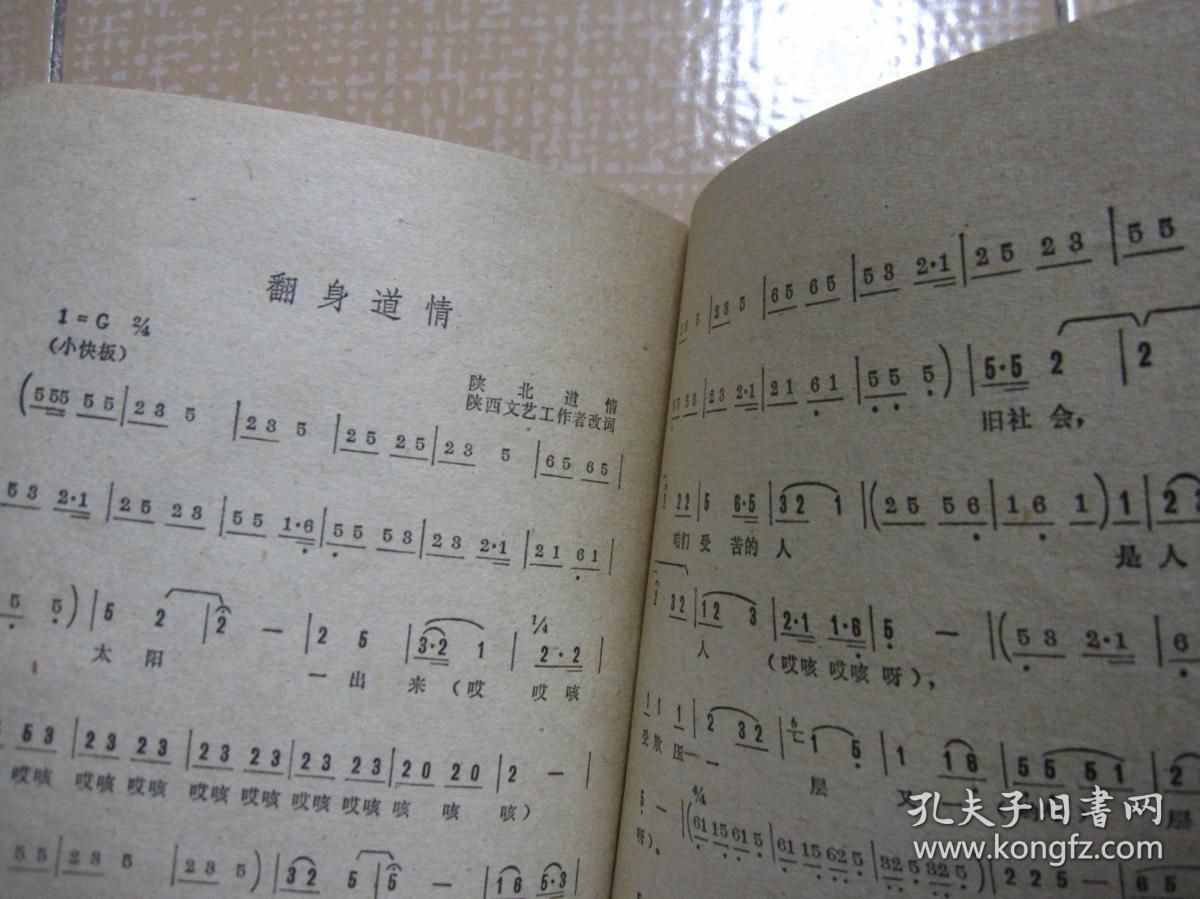 翻身道情
1=G 2/4
(小快板)
陕北道情
陕西文艺工作者改词
(555 55|23 5|23 5|25 25|23 5|65 65|
53 2·1|25 23|55 1·6|55 53|23 2·1|21 61|
5 5)|5 2|2 —|2 5|3·2 1|1/4 2·2|
太阳 一出来(哎 哎咳
53|23 23|23 23|23 23|20 20|2 —|
哎咳 哎咳 哎咳 哎咳 哎咳 哎咳 哎咳 咳 咳 咳)
55|23 5|23 5)|32 5|5 —|16 5·3|
5|23 5|65 65|53 2·1|25 23|55
53|23 2·1|21 61|55 5)|5·5 2|2
旧社会,
22|5 6·5|32 1|(25 56|16 1)|1|23
咱们受苦的人 是人
2 32|12 3|2·1 1·6|5 —|(53 2·1|6
人 (哎咳 哎咳 呀),
1 1 1|2 32|1 5|1 16|55 51|2
受欺压一 层 又一 层
5 —|4/4 (61 15 61 5|61 15 62 5|32 5 32 5)|2 2 5 —|65
呀)。
孔夫子旧书网
www.kongfz.com